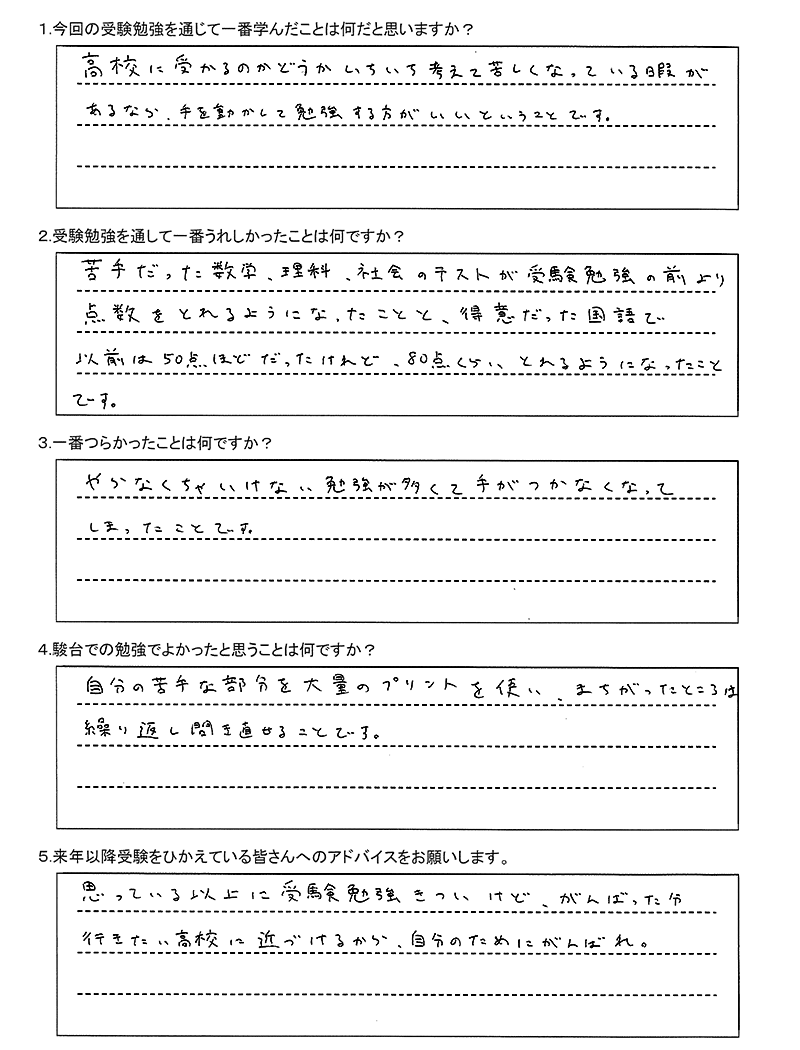 1.今回の受験勉強を通じて一番学んだことは何だと思いますか？
高校に受かるのかどうかいちいち考えて苦しくなっている暇が
あるなら、手を動かして勉強する方がいいということです。
2.受験勉強を通して一番うれしかったことは何ですか？
苦手だった数学、理科、社会のテストが受験勉強の前より
点数をとれるようになったことと、得意だった国語で
以前は50点ほどだったけれど、80点くらいとれるようになったこと
です。
3.一番つらかったことは何ですか？
やらなくちゃいけない勉強が多くて手がつかなくなって
しまったことです。
4.駿台での勉強でよかったと思うことは何ですか？
自分の苦手な部分を大量のプリントを使い、まちがったところは
繰り返し問き直せることです。
5.来年以降受験をひかえている皆さんへのアドバイスをお願いします。
思っている以上に受験勉強きついけど、がんばった分
行きたい高校に近づけるから、自分のためにがんばれ。